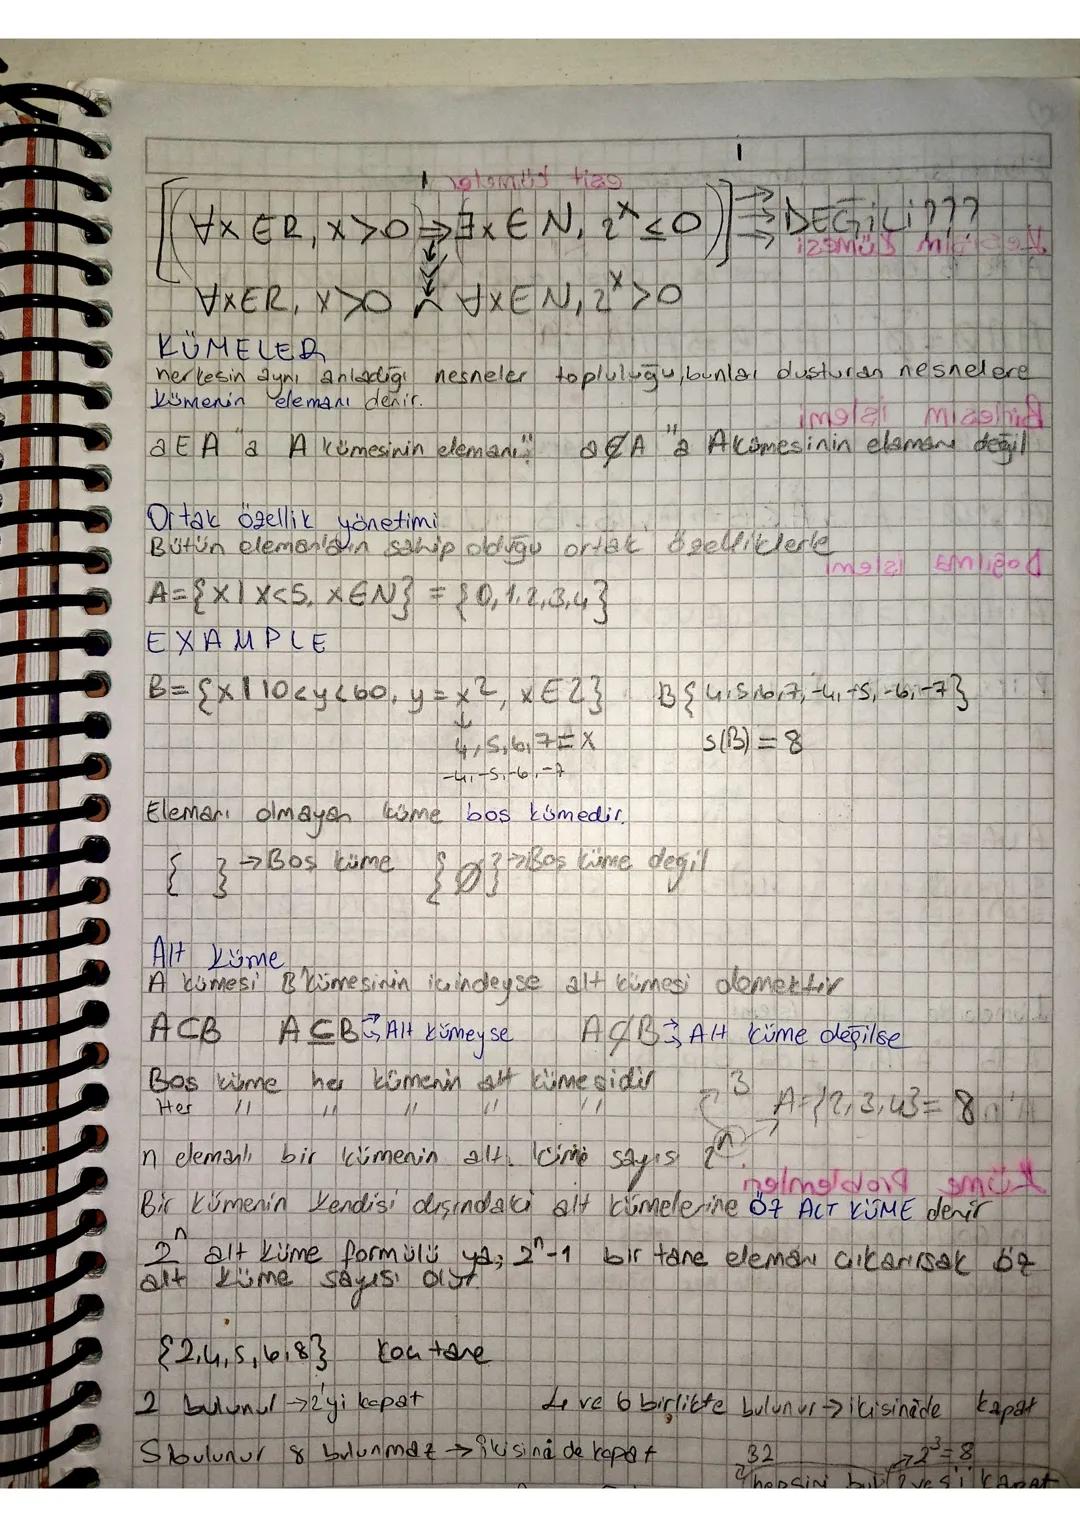 [(∀x∈R, x>0 ⇒ ∃x∈N, 2^x ≤0)] → DEĞİLİ???
∀x∈R, x>0 ∧ ∀x∈N, 2^x>0
KÜMELER
herkesin aynı anladığı nesneler topluluğu, bunları dusturan nesnelere
kümenin elemanı denir.
a∈A "a A kümesinin elemanı" a∉A "a A kümesinin elemanı değil
Ortak özellik yönetimi
Bütün elemanların sahip olduğu ortak özelliklerle
A={x| x<5, x∈N} = {0,1,2,3,4}
EXAMPLE
B={x|10<y<60, y=x², x∈Z} B{4,5,6,7,-4,-5,-6,-7}
4,5,6,7=x s(B)=8
-4,-5,-6,-7
Elemanı olmayan küme bos kümedir.
{ } → Boş küme {∅} → Boş küme değil
Alt Küme
A kümesi B kümesinin içindeyse alt kümesi demektir
A⊂B A⊆B → Alt kümeyse A⊄B → Alt küme değilse
Bos küme her kümenin alt kümesidir
Her " " " " "
3 A={2,3,4}= 8
n elemanlı bir kümenin alt küme sayısı 2^n
Bir kümenin kendisi dışındaki alt kümelerine ÖZ ALT KÜME denir
2^n alt küme formülü ya; 2^n-1 bir tane elemanı çıkarırsak öz
alt küme sayısı olur.
{2,4,5,6,8} kaç tane
2 bulunul → 2'yi kapat 4 ve 6 birlikte bulunur → ikisinide kapat
5 bulunur 8 bulunmaz → ikisinide kapat 32 → 2³=8